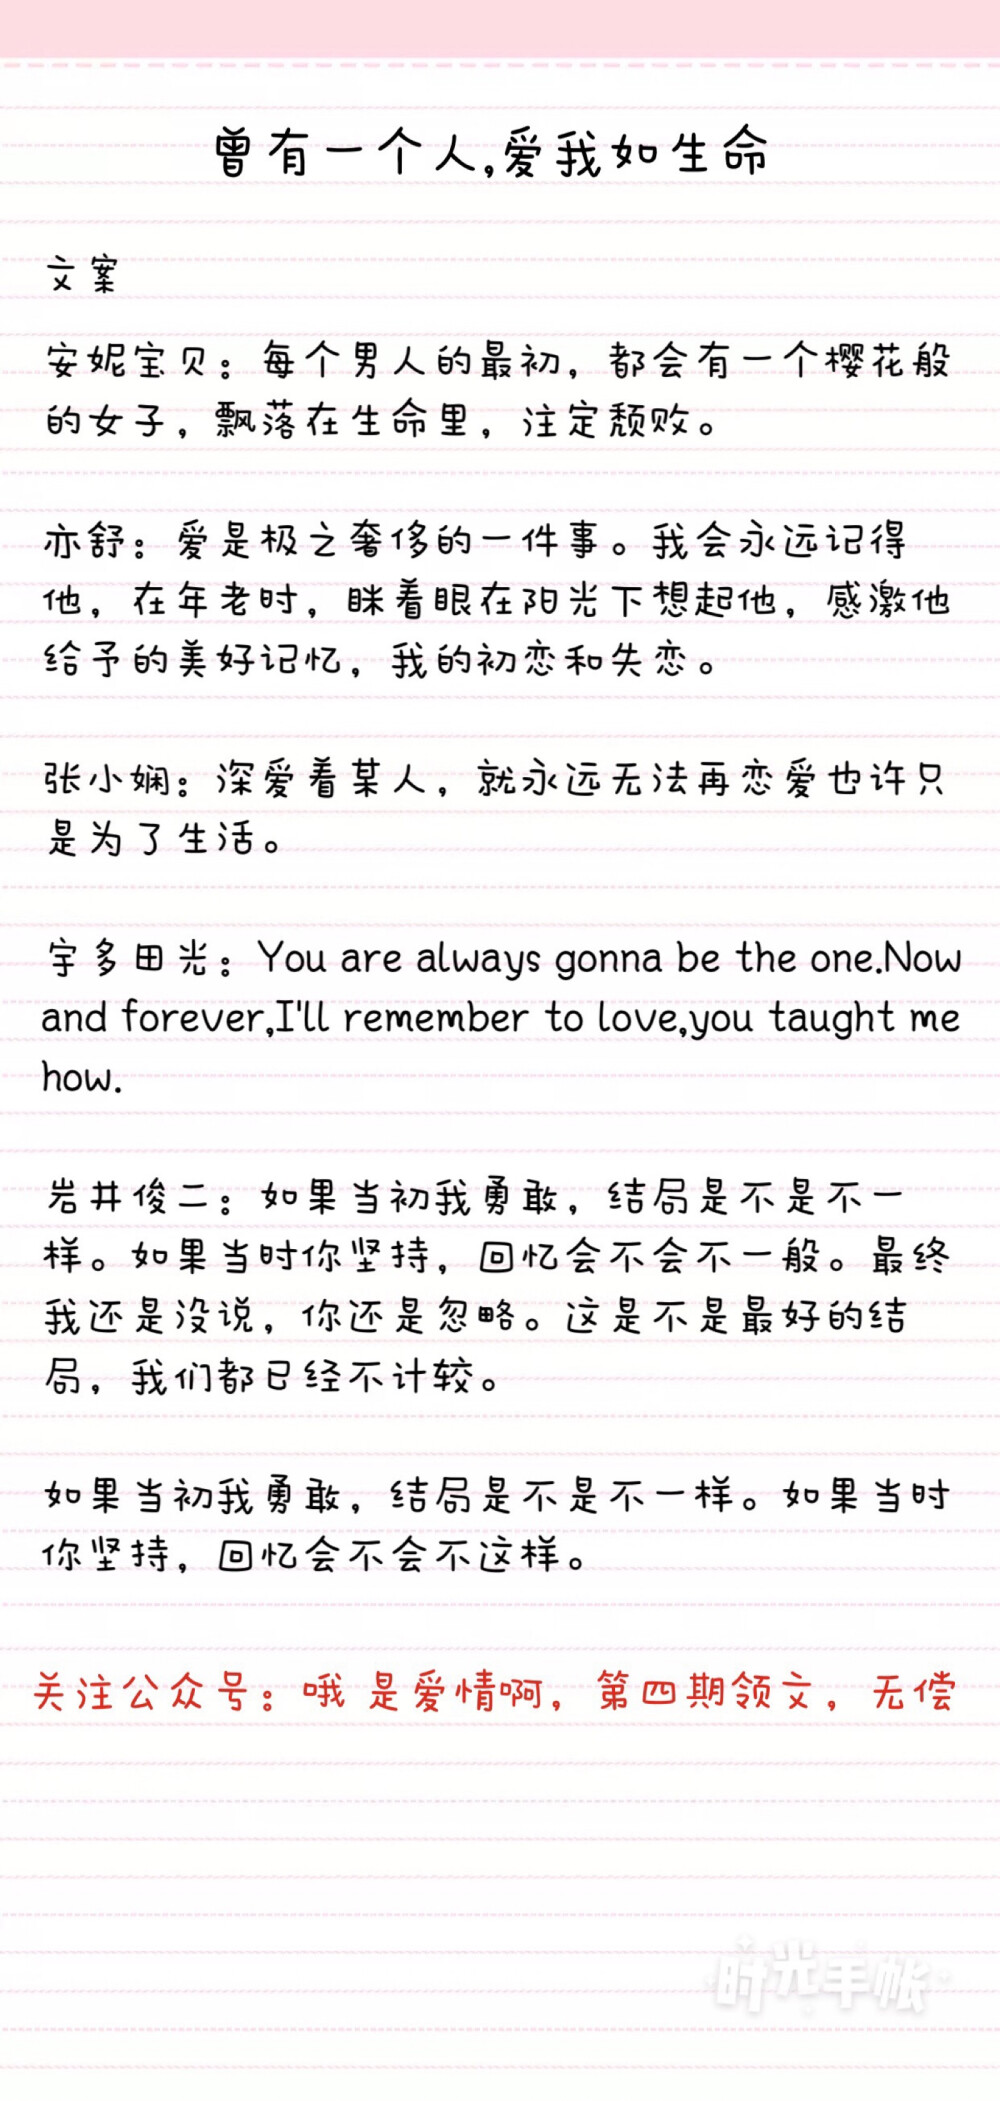 曾有一个人,爱我如生命
文案
安妮宝贝：每个男人的最初，都会有一个樱花般
的女子，飘落在生命里，注定颓败。
亦舒：爱是极之奢侈的一件事。我会永远记得
他，在年老时，眯着眼在阳光下想起他，感激他
给予的美好记忆，我的初恋和失恋。
张小娴：深爱着某人，就永远无法再恋爱也许只
是为了生活。
宇多田光：You are always gonna be the one.Now
and forever,I'll remember to love,you taught me
how.
岩井俊二：如果当初我勇敢，结局是不是不一
样。如果当时你坚持，回忆会不会不一般。最终
我还是没说，你还是忽略。这是不是最好的结
局，我们都已经不计较。
如果当初我勇敢，结局是不是不一样。如果当时
你坚持，回忆会不会不这样。
关注公众号：哦 是爱情啊，第四期领文，无偿
时光手帐